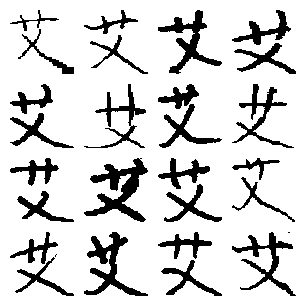 艾艾艾艾
艾艾艾艾
艾艾艾艾
艾艾艾艾